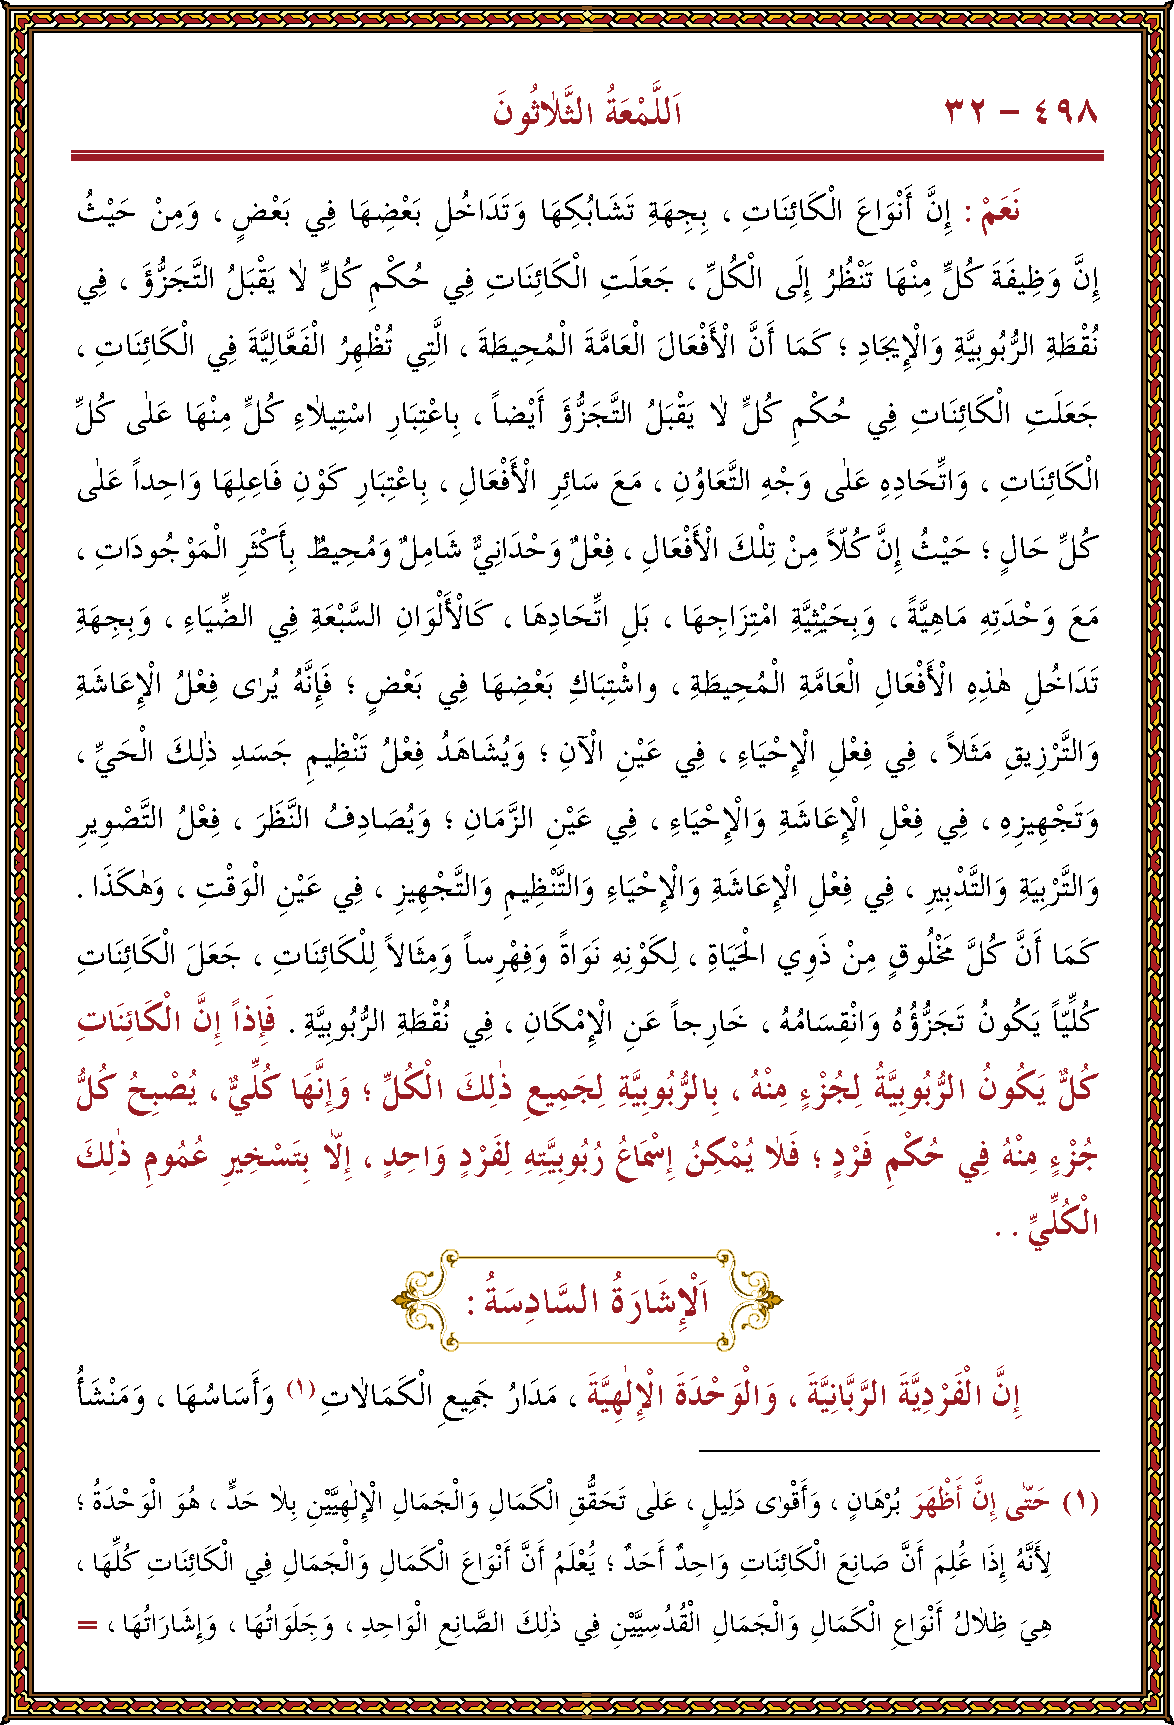 ٤٩٨ – ٣٢ اَللَّمْعَةُ الثَّلَاثُونَ
نَعَمْ : إِنَّ أَنْوَاعَ الْكَائِنَاتِ ، بِجِهَةِ تَشَابُكِهَا وَتَدَاخُلِ بَعْضِهَا فِي بَعْضٍ ، وَمِنْ حَيْثُ
إِنَّ وَظِيفَةَ كُلٍّ مِنْهَا تَنْظُرُ إِلَى الْكُلِّ ، جَعَلَتِ الْكَائِنَاتِ فِي حُكْمِ كُلٍّ لَا يَقْبَلُ التَّجَزُّؤَ ، فِي
نُقْطَةِ الرُّبُوبِيَّةِ وَالْإِيجَادِ ؛ كَمَا أَنَّ الْأَفْعَالَ الْعَامَّةَ الْمُحِيطَةَ ، الَّتِي تُظْهِرُ الْفَعَّالِيَّةَ فِي الْكَائِنَاتِ ،
جَعَلَتِ الْكَائِنَاتِ فِي حُكْمِ كُلٍّ لَا يَقْبَلُ التَّجَزُّؤَ أَيْضاً ، بِاعْتِبَارِ اسْتِيلَاءِ كُلٍّ مِنْهَا عَلَى كُلِّ
الْكَائِنَاتِ ، وَاتِّحَادِهِ عَلَى وَجْهِ التَّعَاوُنِ ، مَعَ سَائِرِ الْأَفْعَالِ ، بِاعْتِبَارِ كَوْنِ فَاعِلِهَا وَاحِداً عَلَى
كُلِّ حَالٍ ؛ حَيْثُ إِنَّ كُلّاً مِنْ تِلْكَ الْأَفْعَالِ ، فِعْلٌ وَحْدَانِيٌّ شَامِلٌ وَمُحِيطٌ بِأَكْثَرِ الْمَوْجُودَاتِ ،
مَعَ وَحْدَتِهِ مَاهِيَّةً ، وَبِحَيْثِيَّةِ امْتِزَاجِهَا ، بَلِ اتِّحَادِهَا ، كَالْأَلْوَانِ السَّبْعَةِ فِي الضِّيَاءِ ، وَبِجِهَةِ
تَدَاخُلِ هٰذِهِ الْأَفْعَالِ الْعَامَّةِ الْمُحِيطَةِ ، وَاشْتِبَاكِ بَعْضِهَا فِي بَعْضٍ ؛ فَإِنَّهُ يُرٰى فِعْلُ الْإِعَاشَةِ
وَالتَّرْزِيقِ مَثَلاً ، فِي فِعْلِ الْإِحْيَاءِ ، فِي عَيْنِ الْآنِ ؛ وَيُشَاهَدُ فِعْلُ تَنْظِيمِ جَسَدِ ذٰلِكَ الْحَيِّ ،
وَتَجْهِيزِهِ ، فِي فِعْلِ الْإِعَاشَةِ وَالْإِحْيَاءِ ، فِي عَيْنِ الزَّمَانِ ؛ وَيُصَادِفُ النَّظَرَ ، فِعْلُ التَّصْوِيرِ
وَالتَّرْبِيَةِ وَالتَّدْبِيرِ ، فِي فِعْلِ الْإِعَاشَةِ وَالْإِحْيَاءِ وَالتَّنْظِيمِ وَالتَّجْهِيزِ ، فِي عَيْنِ الْوَقْتِ ، وَهٰكَذَا .
كَمَا أَنَّ كُلَّ مَخْلُوقٍ مِنْ ذَوِي الْحَيَاةِ ، لِكَوْنِهِ نَوَاةً وَفِهْرِساً وَمِثَالاً لِلْكَائِنَاتِ ، جَعَلَ الْكَائِنَاتِ
كُلِّيّاً يَكُونُ تَجَزُّؤُهُ وَانْقِسَامُهُ ، خَارِجاً عَنِ الْإِمْكَانِ ، فِي نُقْطَةِ الرُّبُوبِيَّةِ . فَإِذاً إِنَّ الْكَائِنَاتِ
كُلٌّ يَكُونُ الرُّبُوبِيَّةُ لِجُزْءٍ مِنْهُ ، بِالرُّبُوبِيَّةِ لِجَمِيعِ ذٰلِكَ الْكُلِّ ؛ وَإِنَّهَا كُلِّيٌّ ، يُصْبِحُ كُلُّ
جُزْءٍ مِنْهُ فِي حُكْمِ فَرْدٍ ؛ فَلَا يُمْكِنُ إِسْمَاعُ رُبُوبِيَّتِهِ لِفَرْدٍ وَاحِدٍ ، إِلَّا بِتَسْخِيرِ عُمُومِ ذٰلِكَ
الْكُلِّيِّ . .
اَلْإِشَارَةُ السَّادِسَةُ :
إِنَّ الْفَرْدِيَّةَ الرَّبَّانِيَّةَ ، وَالْوَحْدَةَ الْإِلٰهِيَّةَ ، مَدَارُ جَمِيعِ الْكَمَالَاتِ (١) وَأَسَاسُهَا ، وَمَنْشَأُ
(١) حَتّٰى إِنَّ أَظْهَرَ بُرْهَانٍ ، وَأَقْوٰى دَلِيلٍ ، عَلٰى تَحَقُّقِ الْكَمَالِ وَالْجَمَالِ الْإِلٰهِيَّيْنِ بِلَا حَدٍّ ، هُوَ الْوَحْدَةُ ؛
لِأَنَّهُ إِذَا عُلِمَ أَنَّ صَانِعَ الْكَائِنَاتِ وَاحِدٌ أَحَدٌ ؛ يُعْلَمُ أَنَّ أَنْوَاعَ الْكَمَالِ وَالْجَمَالِ فِي الْكَائِنَاتِ كُلِّهَا ،
هِيَ ظِلَالُ أَنْوَاعِ الْكَمَالِ وَالْجَمَالِ الْقُدْسِيَّيْنِ فِي ذٰلِكَ الصَّانِعِ الْوَاحِدِ ، وَجِلَوَاتُهَا ، وَإِشَارَاتُهَا ، =